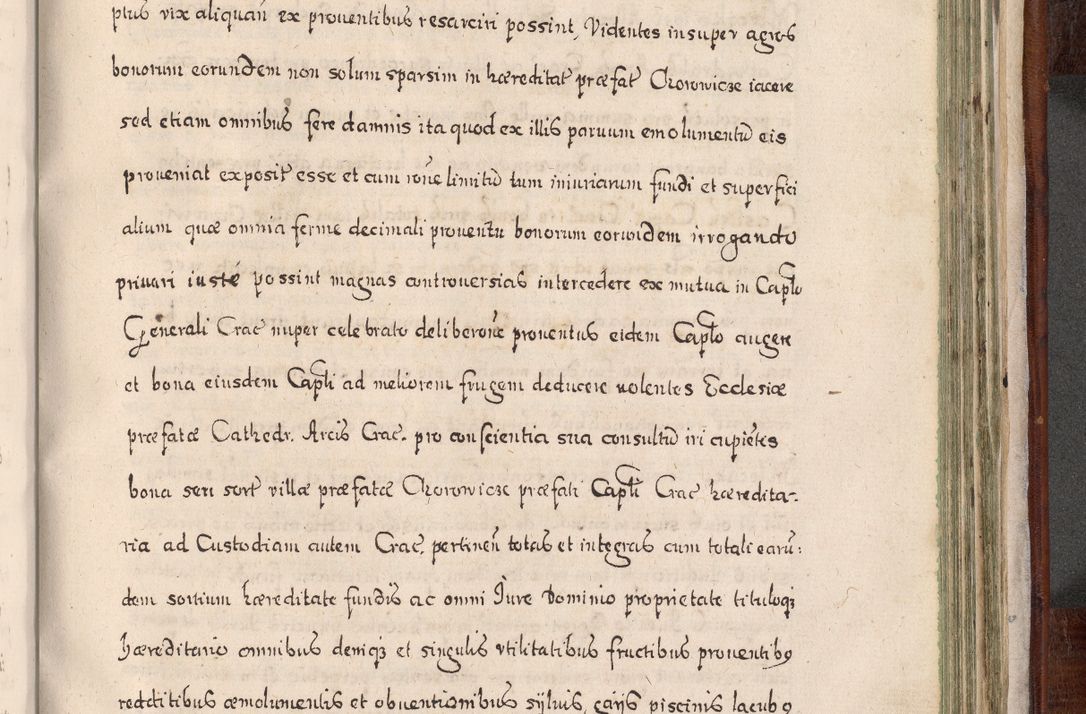 ptus vix aliquan̄ ex prouentibus resarciri possint, Videntes insuper agros
bonorum eorundem non solum sparsim in hæreditat̄ præfat̄ Chorowicze iacere
sed etiam omnibus fere damnis ita quod ex illis paruum emolumentū eis
proueniat exposit̄ esse et cum rōne limitū tum iniuriarum fundi et superfici
alium quæ omnia ferme decimali prouentu bonorum eorundem irrogando
priuari iuste possint magnas controuersias intercedere ex mutua in Caplo
Generali Crac̄ nuper celebrato deliberōne prouentus eidem Caplo augere
et bona eiusdem Capli ad meliorem frugem deducere uolentes Ecclesiæ
præfatæ Cathedr. Arcis Crac. pro conscientia sua consultū iri cupiētes
bona seu sort̄ villæ præfatæ Chorowicze præfati Capli Crac̄ hæredita-
ria ad Custodiam autem Crac. pertinen̄ totas et integras cum totali earū:
dem sortium hæreditate fundis ac omni Jure Dominio proprietate tituloqȝ
hæreditario omnibus deniqȝ et singulis vtilitatibus fructibus prouentibȝ
reddtitibus æmolumentis et obuentionibus syluis, gays piscinis lacubȝ